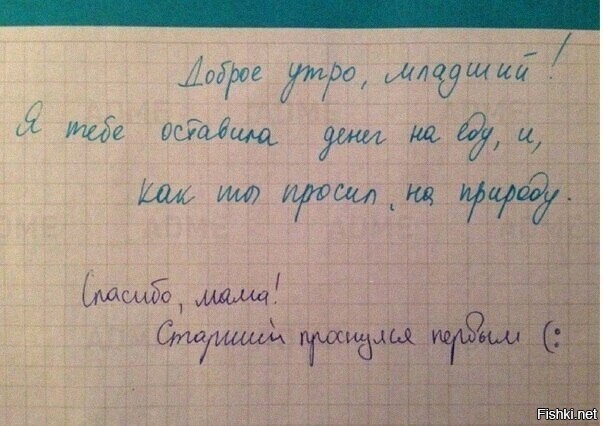 Доброе утро, младший!
Я тебе оставила денег на еду, и,
как ты просил, на природу.
Спасибо, мама!
Старший проснулся первым (:
Fishki.net